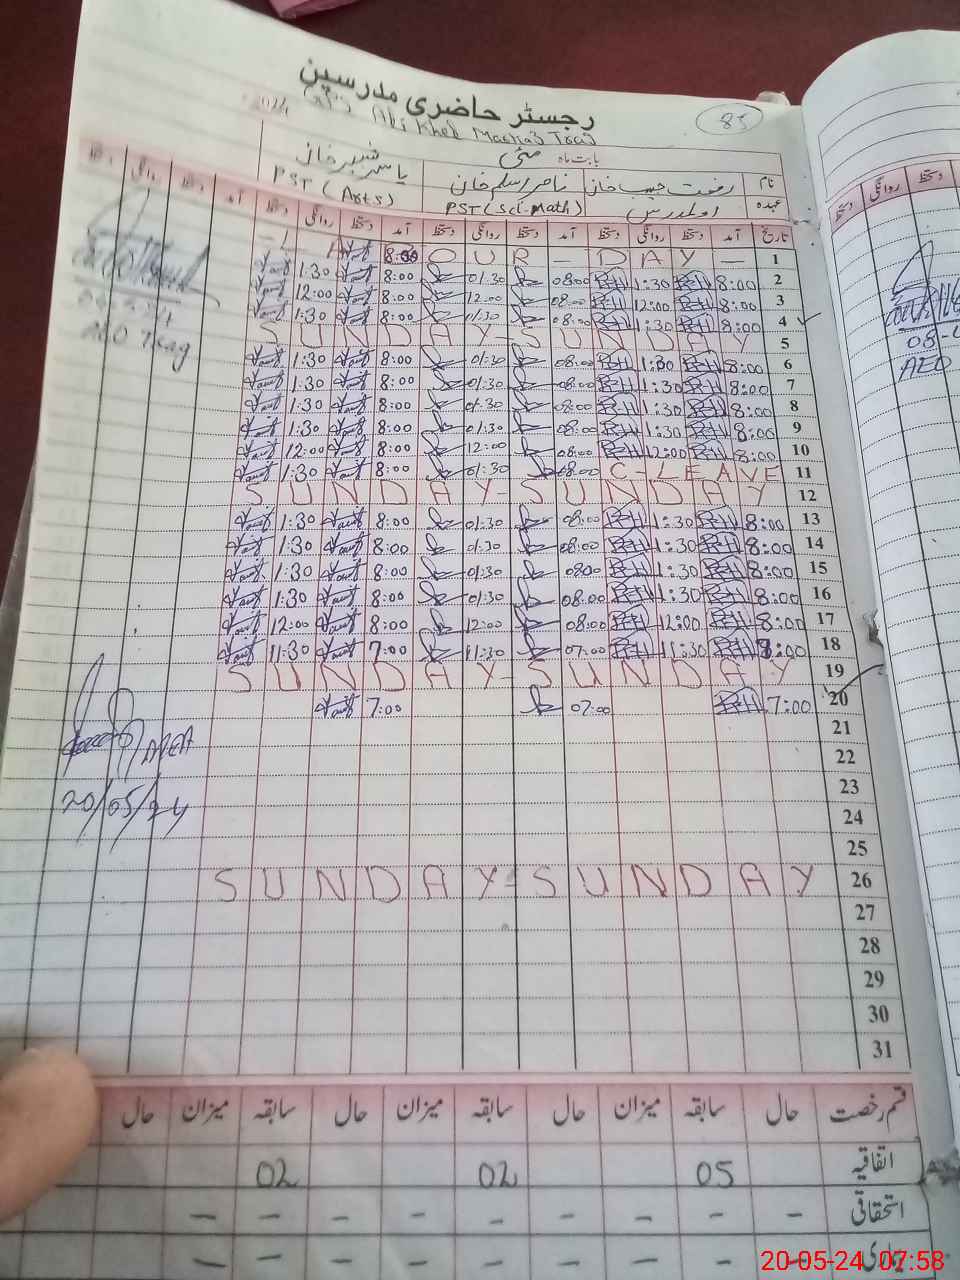 رجسٹر حاضری مدرسین
85
2024
بابت ماہ مئی
نام رفعت حبیب خان ناصر اسلم خان یاسر ضمیر خان
عہدہ اول مدرس PST (Sci-Math) PST (Arts)
تاریخ آمد دستخط روانگی دستخط آمد دستخط روانگی دستخط آمد دستخط روانگی دستخط آمد دستخط روانگی دستخط
1 - L OUR - DAY - 8:00
2 8:00 1:30 08:00 01:30 8:00 1:30
3 8:00 12:00 08:00 12:00 8:00 12:00
4 8:00 1:30 08:00 01:30 8:00 1:30
5 SUNDAY-SUNDAY
6 8:00 1:30 08:00 01:30 8:00 1:30
7 8:00 1:30 08:00 01:30 8:00 1:30
8 8:00 1:30 08:00 01:30 8:00 1:30
9 8:00 1:30 08:00 01:30 8:00 1:30
10 8:00 12:00 08:00 12:00 8:00 12:00
11 C-LEAVE 08:00 01:30 8:00 1:30
12 SUNDAY-SUNDAY
13 8:00 1:30 08:00 01:30 8:00 1:30
14 8:00 1:30 08:00 01:30 8:00 1:30
15 8:00 1:30 08:00 01:30 8:00 1:30
16 8:00 1:30 08:00 01:30 8:00 1:30
17 8:00 12:00 08:00 12:00 8:00 12:00
18 8:00 11:30 07:00 11:30 7:00 11:30
19 SUNDAY-SUNDAY
20 7:00 07:00 7:00
21
22
23
24
25
26 SUNDAY-SUNDAY
27
28
29
30
31
AEO
20/05/24
قسم رخصت حال سابقہ میزان حال سابقہ میزان حال سابقہ میزان حال
اتفاقیہ 05 02 02
استحقاقی - - - - - - - - - -
بیماری - - - - - - - - - -
08-
AEO
20-05-24 07:58